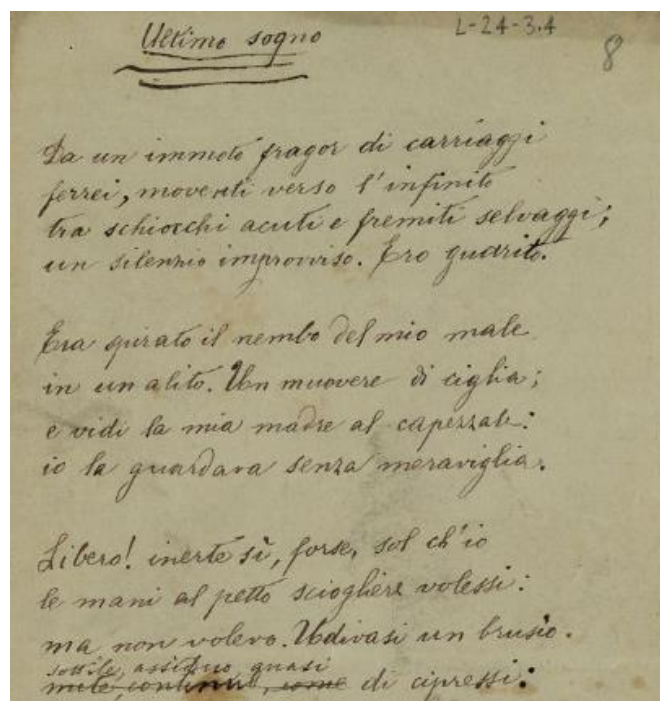 Ultimo sogno
L-24-3.4
8
Da un immoto fragor di carriaggi
ferrei, moventi verso l'infinito
tra schiocchi acuti e fremiti selvaggi;
un silenzio improvviso. Ero guarito.
Era spirato il nembo del mio male
in un alito. Un muovere di ciglia;
e vidi la mia madre al capezzale:
io la guardava senza meraviglia.
Libero! inerte sì, forse, sol ch'io
le mani al petto sciogliere volessi:
ma non volevo. Udivasi un brusio.
sottile, assiduo, quasi
mite, continuo, come di cipressi: